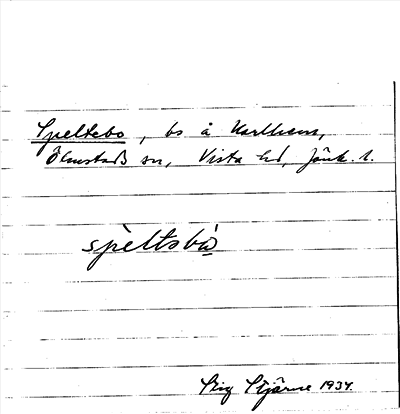 Speltebo, bs å Karlhem,
Ölmstads sn, Vista hd, Jönk. l.
speltsbω
Stig Stjärne 1934.